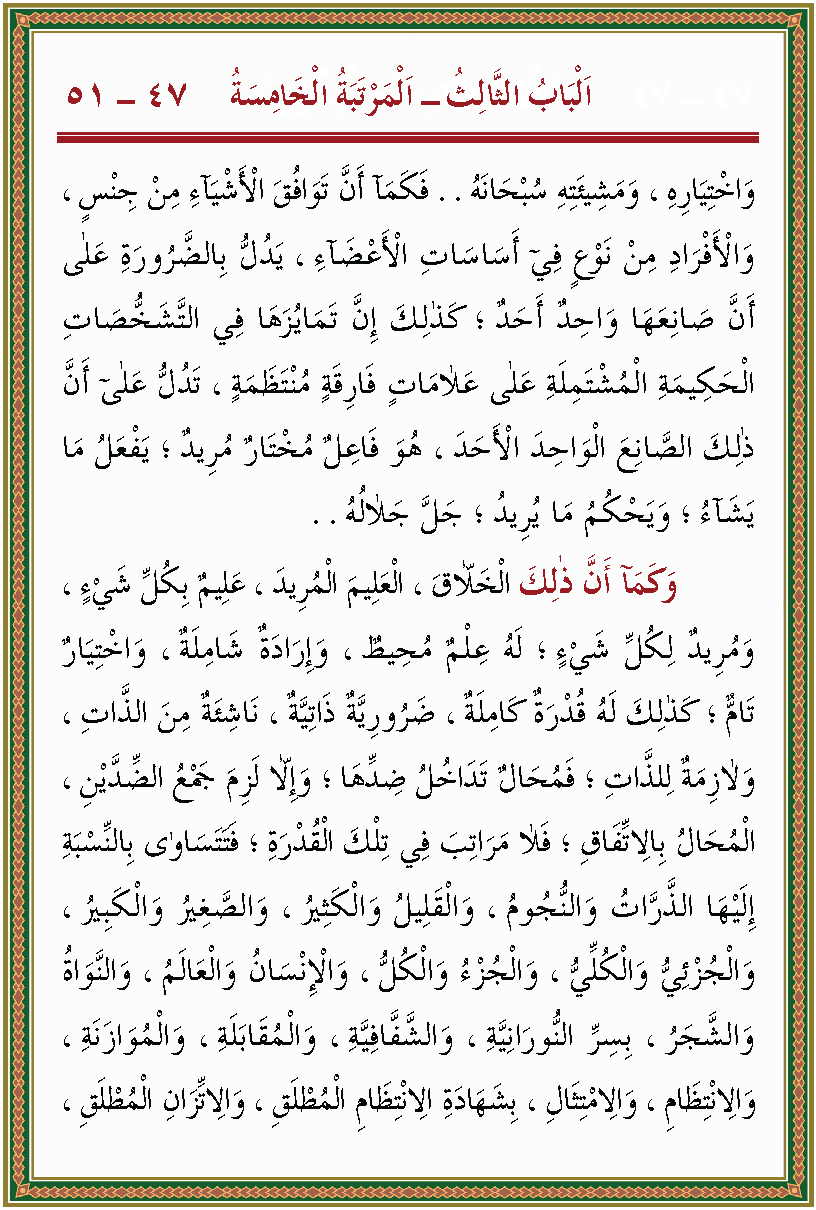 اَلْبَابُ الثَّالِثُ ــ اَلْمَرْتَبَةُ الْخَامِسَةُ ٤٧ ــ ٥١
وَاخْتِيَارِهِ ، وَمَشِيئَتِهِ سُبْحَانَهُ . . فَكَمَآ أَنَّ تَوَافُقَ الْأَشْيَآءِ مِنْ جِنْسٍ ،
وَالْأَفْرَادِ مِنْ نَوْعٍ فِيٓ أَسَاسَاتِ الْأَعْضَآءِ ، يَدُلُّ بِالضَّرُورَةِ عَلٰى
أَنَّ صَانِعَهَا وَاحِدٌ أَحَدٌ ؛ كَذٰلِكَ إِنَّ تَمَايُزَهَا فِي التَّشَخُّصَاتِ
الْحَكِيمَةِ الْمُشْتَمِلَةِ عَلٰى عَلَامَاتٍ فَارِقَةٍ مُنْتَظَمَةٍ ، تُدُلُّ عَلٰىٓ أَنَّ
ذٰلِكَ الصَّانِعَ الْوَاحِدَ الْأَحَدَ ، هُوَ فَاعِلٌ مُخْتَارٌ مُرِيدٌ ؛ يَفْعَلُ مَا
يَشَآءُ ؛ وَيَحْكُمُ مَا يُرِيدُ ؛ جَلَّ جَلَالُهُ . .
وَكَمَآ أَنَّ ذٰلِكَ الْخَلَّاقَ ، الْعَلِيمَ الْمُرِيدَ ، عَلِيمٌ بِكُلِّ شَيْءٍ ،
وَمُرِيدٌ لِكُلِّ شَيْءٍ ؛ لَهُ عِلْمٌ مُحِيطٌ ، وَإِرَادَةٌ شَامِلَةٌ ، وَاخْتِيَارٌ
تَامٌّ ؛ كَذٰلِكَ لَهُ قُدْرَةٌ كَامِلَةٌ ، ضَرُورِيَّةٌ ذَاتِيَّةٌ ، نَاشِئَةٌ مِنَ الذَّاتِ ،
وَلَازِمَةٌ لِلذَّاتِ ؛ فَمُحَالٌ تَدَاخُلُ ضِدِّهَا ؛ وَإِلَّا لَزِمَ جَمْعُ الضِّدَّيْنِ ،
الْمُحَالُ بِالِاتِّفَاقِ ؛ فَلَا مَرَاتِبَ فِي تِلْكَ الْقُدْرَةِ ؛ فَتَتَسَاوٰى بِالنِّسْبَةِ
إِلَيْهَا الذَّرَّاتُ وَالنُّجُومُ ، وَالْقَلِيلُ وَالْكَثِيرُ ، وَالصَّغِيرُ وَالْكَبِيرُ ،
وَالْجُزْئِيُّ وَالْكُلِّيُّ ، وَالْجُزْءُ وَالْكُلُّ ، وَالْإِنْسَانُ وَالْعَالَمُ ، وَالنَّوَاةُ
وَالشَّجَرُ ، بِسِرِّ النُّورَانِيَّةِ ، وَالشَّفَّافِيَّةِ ، وَالْمُقَابَلَةِ ، وَالْمُوَازَنَةِ ،
وَالِانْتِظَامِ ، وَالِامْتِثَالِ ، بِشَهَادَةِ الِانْتِظَامِ الْمُطْلَقِ ، وَالِاتِّزَانِ الْمُطْلَقِ ،